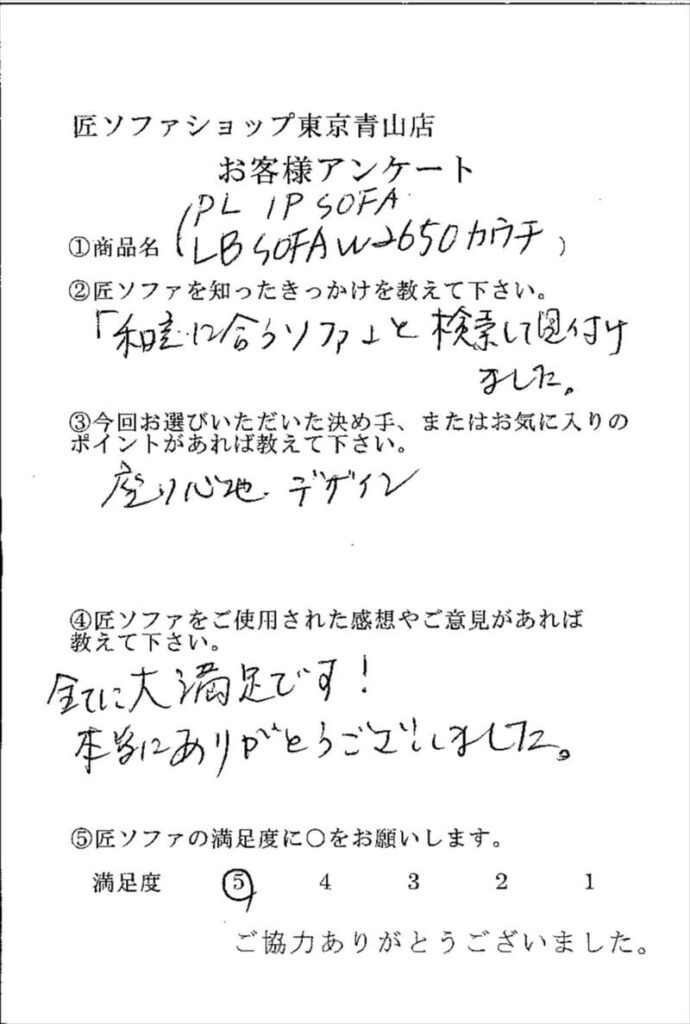 匠ソファショップ東京青山店
お客様アンケート
PL 1P SOFA
①商品名 (LB SOFA W2650カウチ)
②匠ソファを知ったきっかけを教えて下さい。
「和室に合うソファ」と検索して見付け
ました。
③今回お選びいただいた決め手、またはお気に入りの
ポイントがあれば教えて下さい。
座り心地.デザイン
④匠ソファをご使用された感想やご意見があれば
教えて下さい。
全てに大満足です!
本当にありがとうございしました。
⑤匠ソファの満足度に○をお願いします。
満足度 5 4 3 2 1
ご協力ありがとうございました。